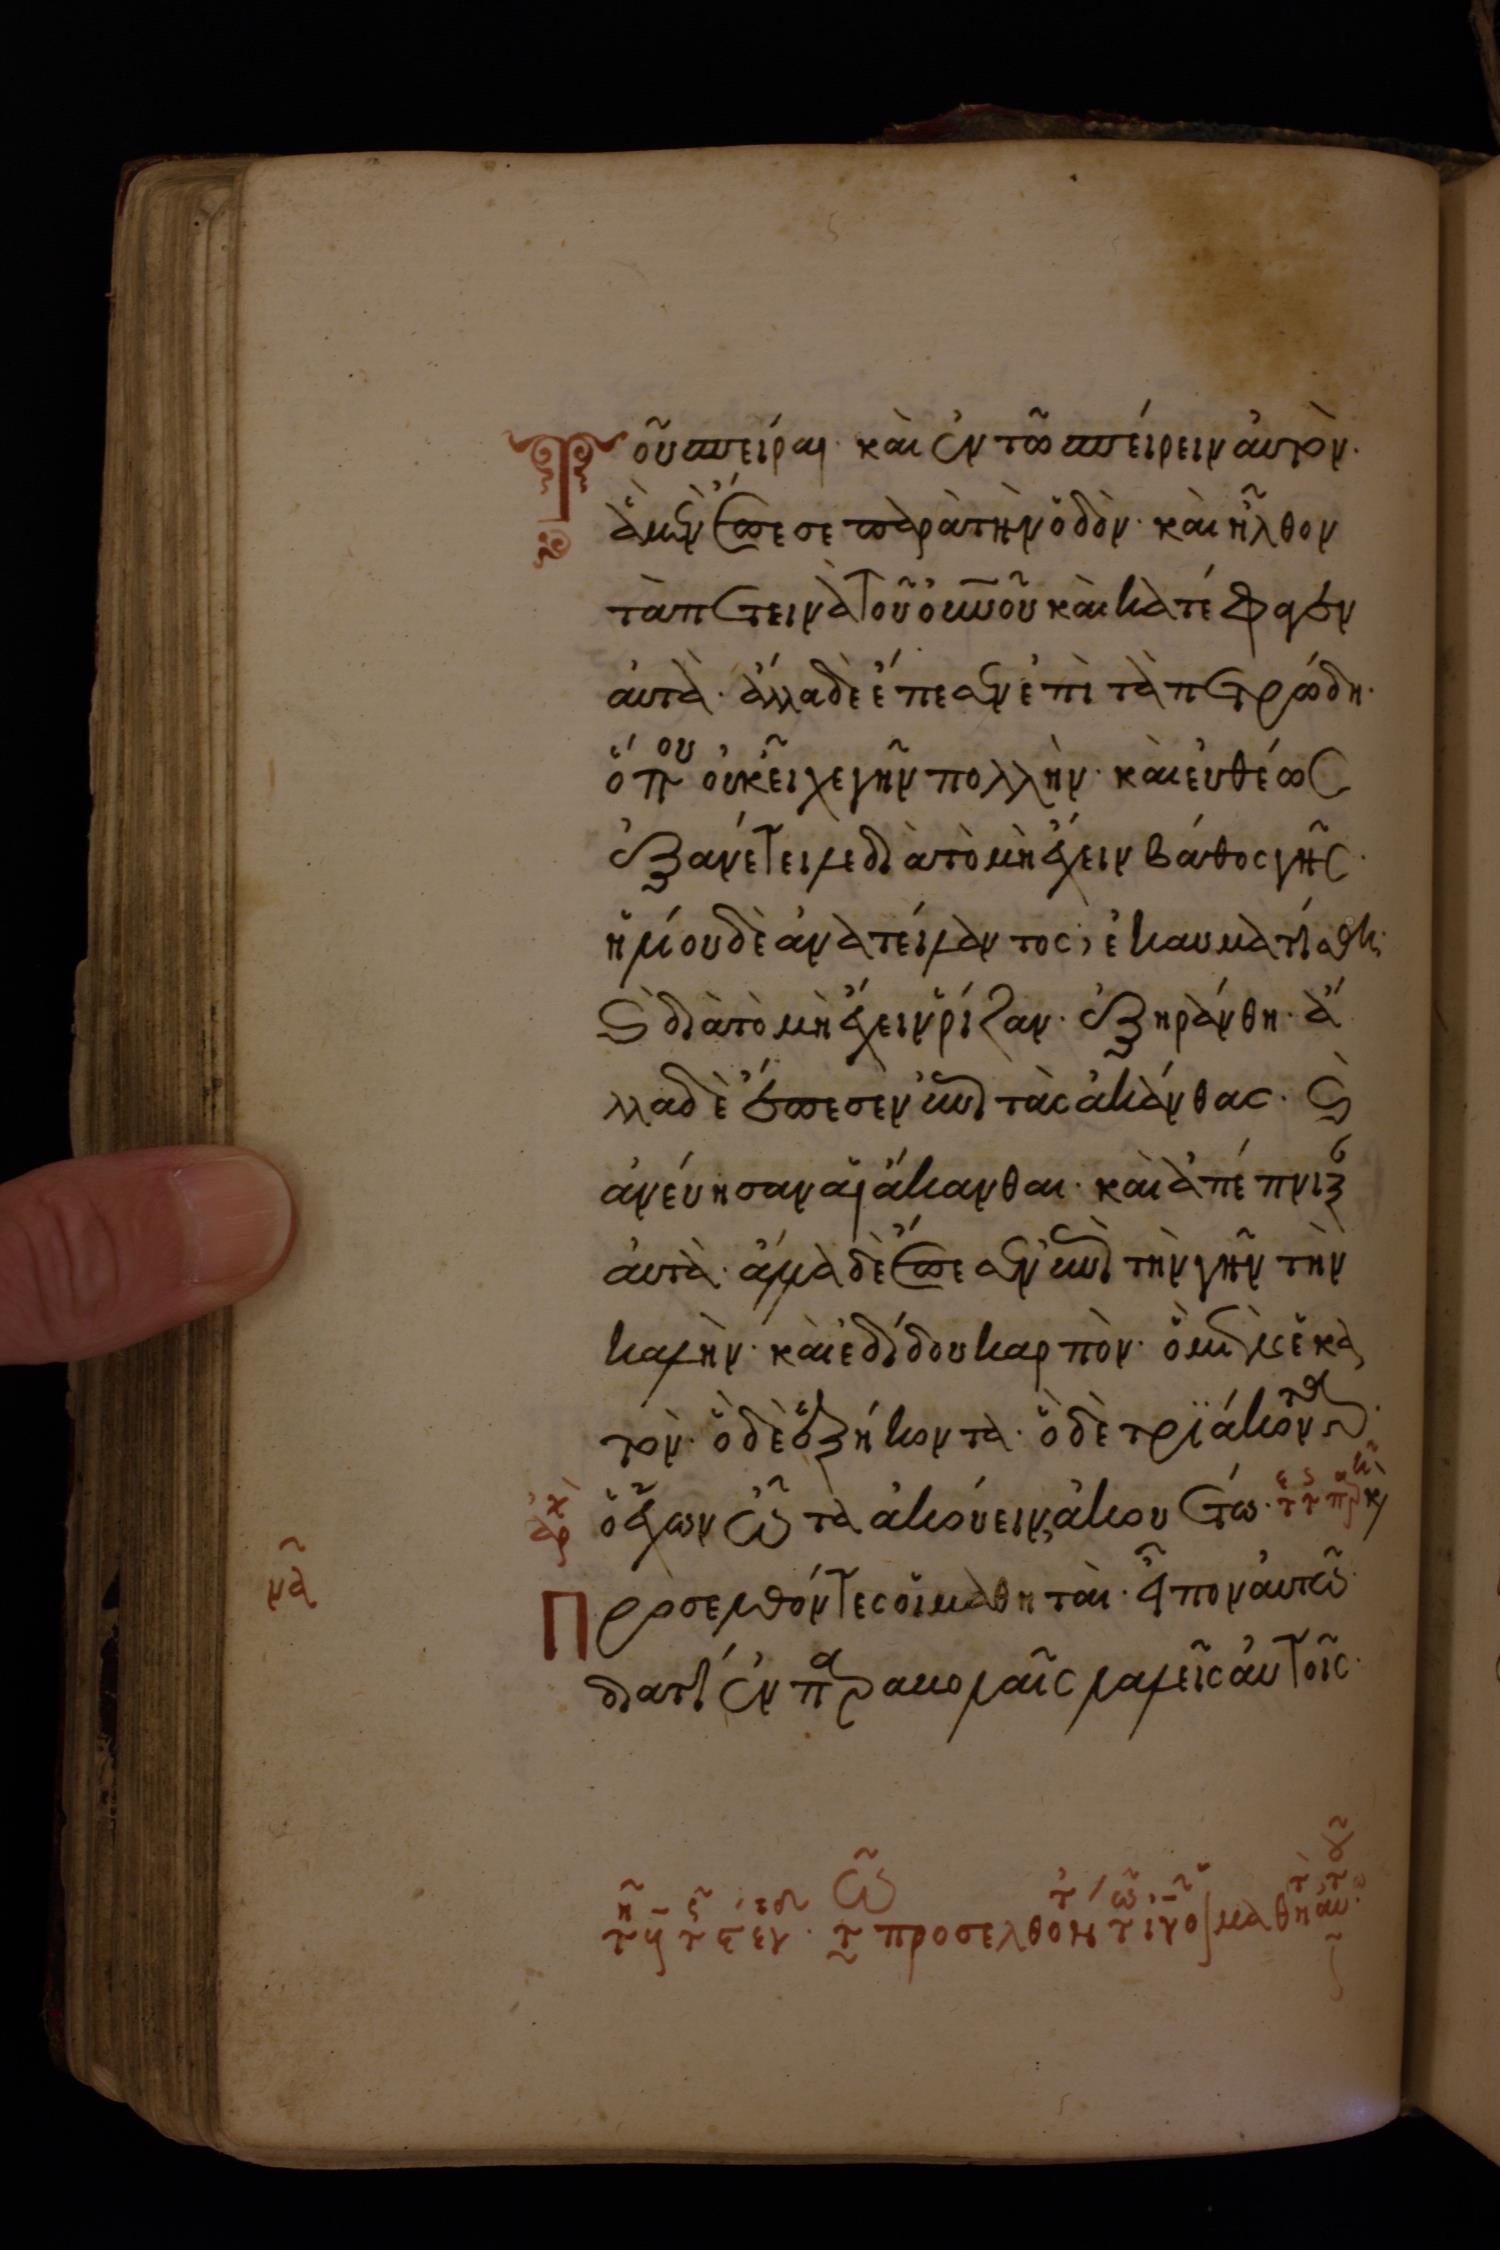 Τοῦ σπεῖραι· καὶ ἐν τῶ σπείρειν αὐτὸν·
ἃ μὲν ἔπεσε παρὰ τὴν ὁδὸν· καὶ ἦλθον
τὰ πετεινὰ τοῦ οὐρανοῦ καὶ κατέφαγεν
αὐτὰ· ἄλλα δὲ ἔπεσεν ἐπὶ τὰ πετρώδη·
ὅπου οὐκ εἶχε γῆν πολλὴν· καὶ εὐθέως
ἐξανέτειλε διὰ τὸ μὴ ἔχειν βάθος γῆς·
ἡλίου δὲ ἀνατείλαντος, ἐκαυματίσθη·
καὶ διὰ τὸ μὴ ἔχειν ῥίζαν· ἐξηράνθη· ἄ
λλα δὲ ἔπεσεν ἐπὶ τὰς ἀκάνθας· καὶ
ἀνέβησαν αἱ ἄκανθαι· καὶ ἀπέπνιξ
αὐτὰ· ἄλλα δὲ ἔπεσεν ἐπὶ τὴν γῆν τὴν
καλὴν· καὶ ἐδίδου καρπὸν· ὃ μὲν ἑκα
τὸν· ὃ δὲ ἑξήκοντα· ὃ δὲ τριάκοντα·
ὁ ἔχων ὦτα ἀκούειν, ἀκουέτω·
Προσελθόντες οἱ μαθηταὶ· εἶπον αὐτῶ·
διατί ἐν παραβολαῖς λαλεῖς αὐτοῖς·